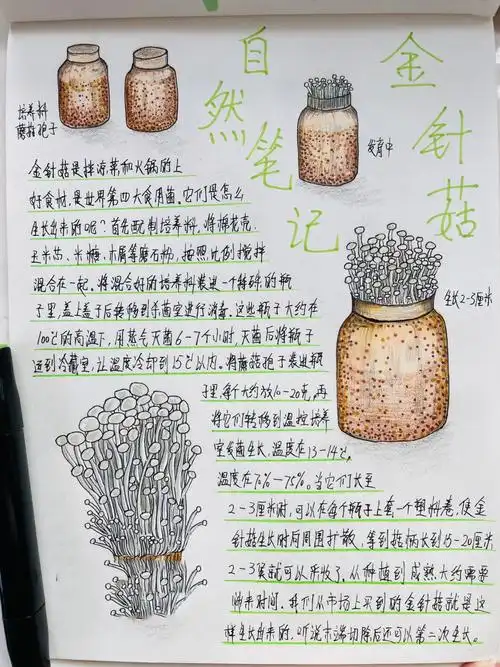 自然笔记
金针菇
培养料
蘑菇孢子
发育中
生长2-3厘米
金针菇是拌凉菜和火锅的上
好食材,是世界第四大食用菌。它们是怎么
生长出来的呢?首先配制培养料,将棉花壳、
玉米芯、米糠、木屑等磨石粉,按照比例搅拌
混合在一起。将混合好的培养料装进一个特殊的瓶
子里,盖上盖子后转移到杀菌室进行消毒。这些瓶子大约在
100℃的高温下,用蒸气灭菌6-7个小时,灭菌后将瓶子
运到冷藏室,让温度冷却到15℃以内。将蘑菇孢子装进瓶
子里,每个大约放10-20克,再
将它们转移到温控培养
室发菌生长,温度在13-14℃,
温度在70%-75%。当它们长至
2-3厘米时,可以在每个瓶子上套一个塑料卷,使金
针菇生长时向周围扩散,等到菇柄长到15-20厘米,
2-3天就可以采收了。从种植到成熟大约需要
时间。我们从市场上买到的金针菇就是这
样生长出来的,听说末端切除后还可以第二次生长。